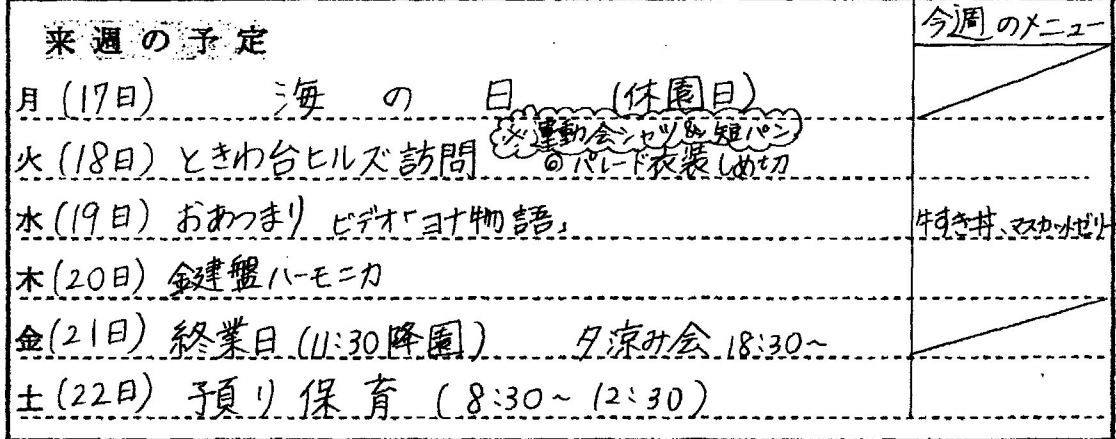 来週の予定
今週のメニュー
月(17日) 海の日 (休園日)
※運動会シャツ&短パン
火(18日) ときわ台ヒルズ訪問 ◎パレード衣装しめ切
水(19日) おあつまり ビデオ「ヨナ物語」 牛すき丼、マスカットゼリー
木(20日) 鍵盤ハーモニカ
金(21日) 終業日(11:30降園) 夕涼み会 18:30~
土(22日) 預り保育 (8:30~12:30)